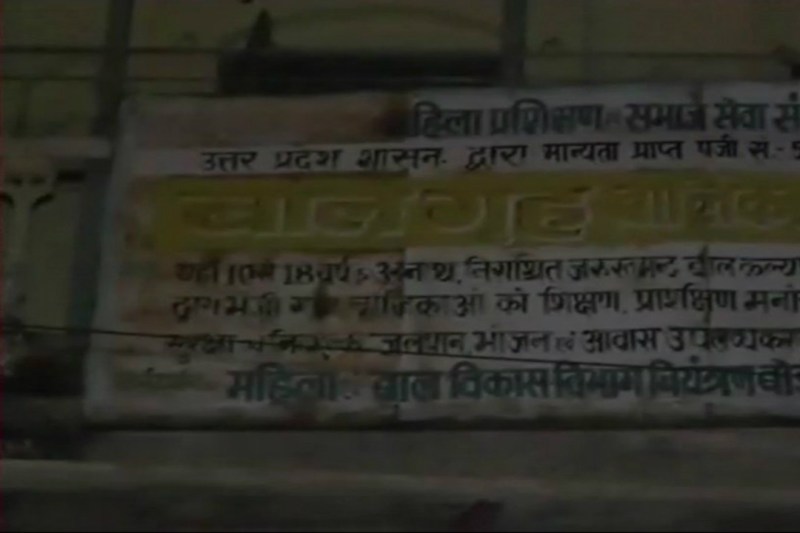 हिला प्रशिक्षण समाज सेवा सं
उत्तर प्रदेश शासन द्वारा मान्यता प्राप्त पंजी सं.-
बालगृह बालिका
18 वर्ष के अनाथ, निराश्रित जरूरतमन्द
द्वारा भेजी गई बालिकाओं को शिक्षण, प्रशिक्षण
सुरक्षा जलपान, भोजन एवं आवास उपलब्ध
महिला बाल विकास विभाग नियंत्रण